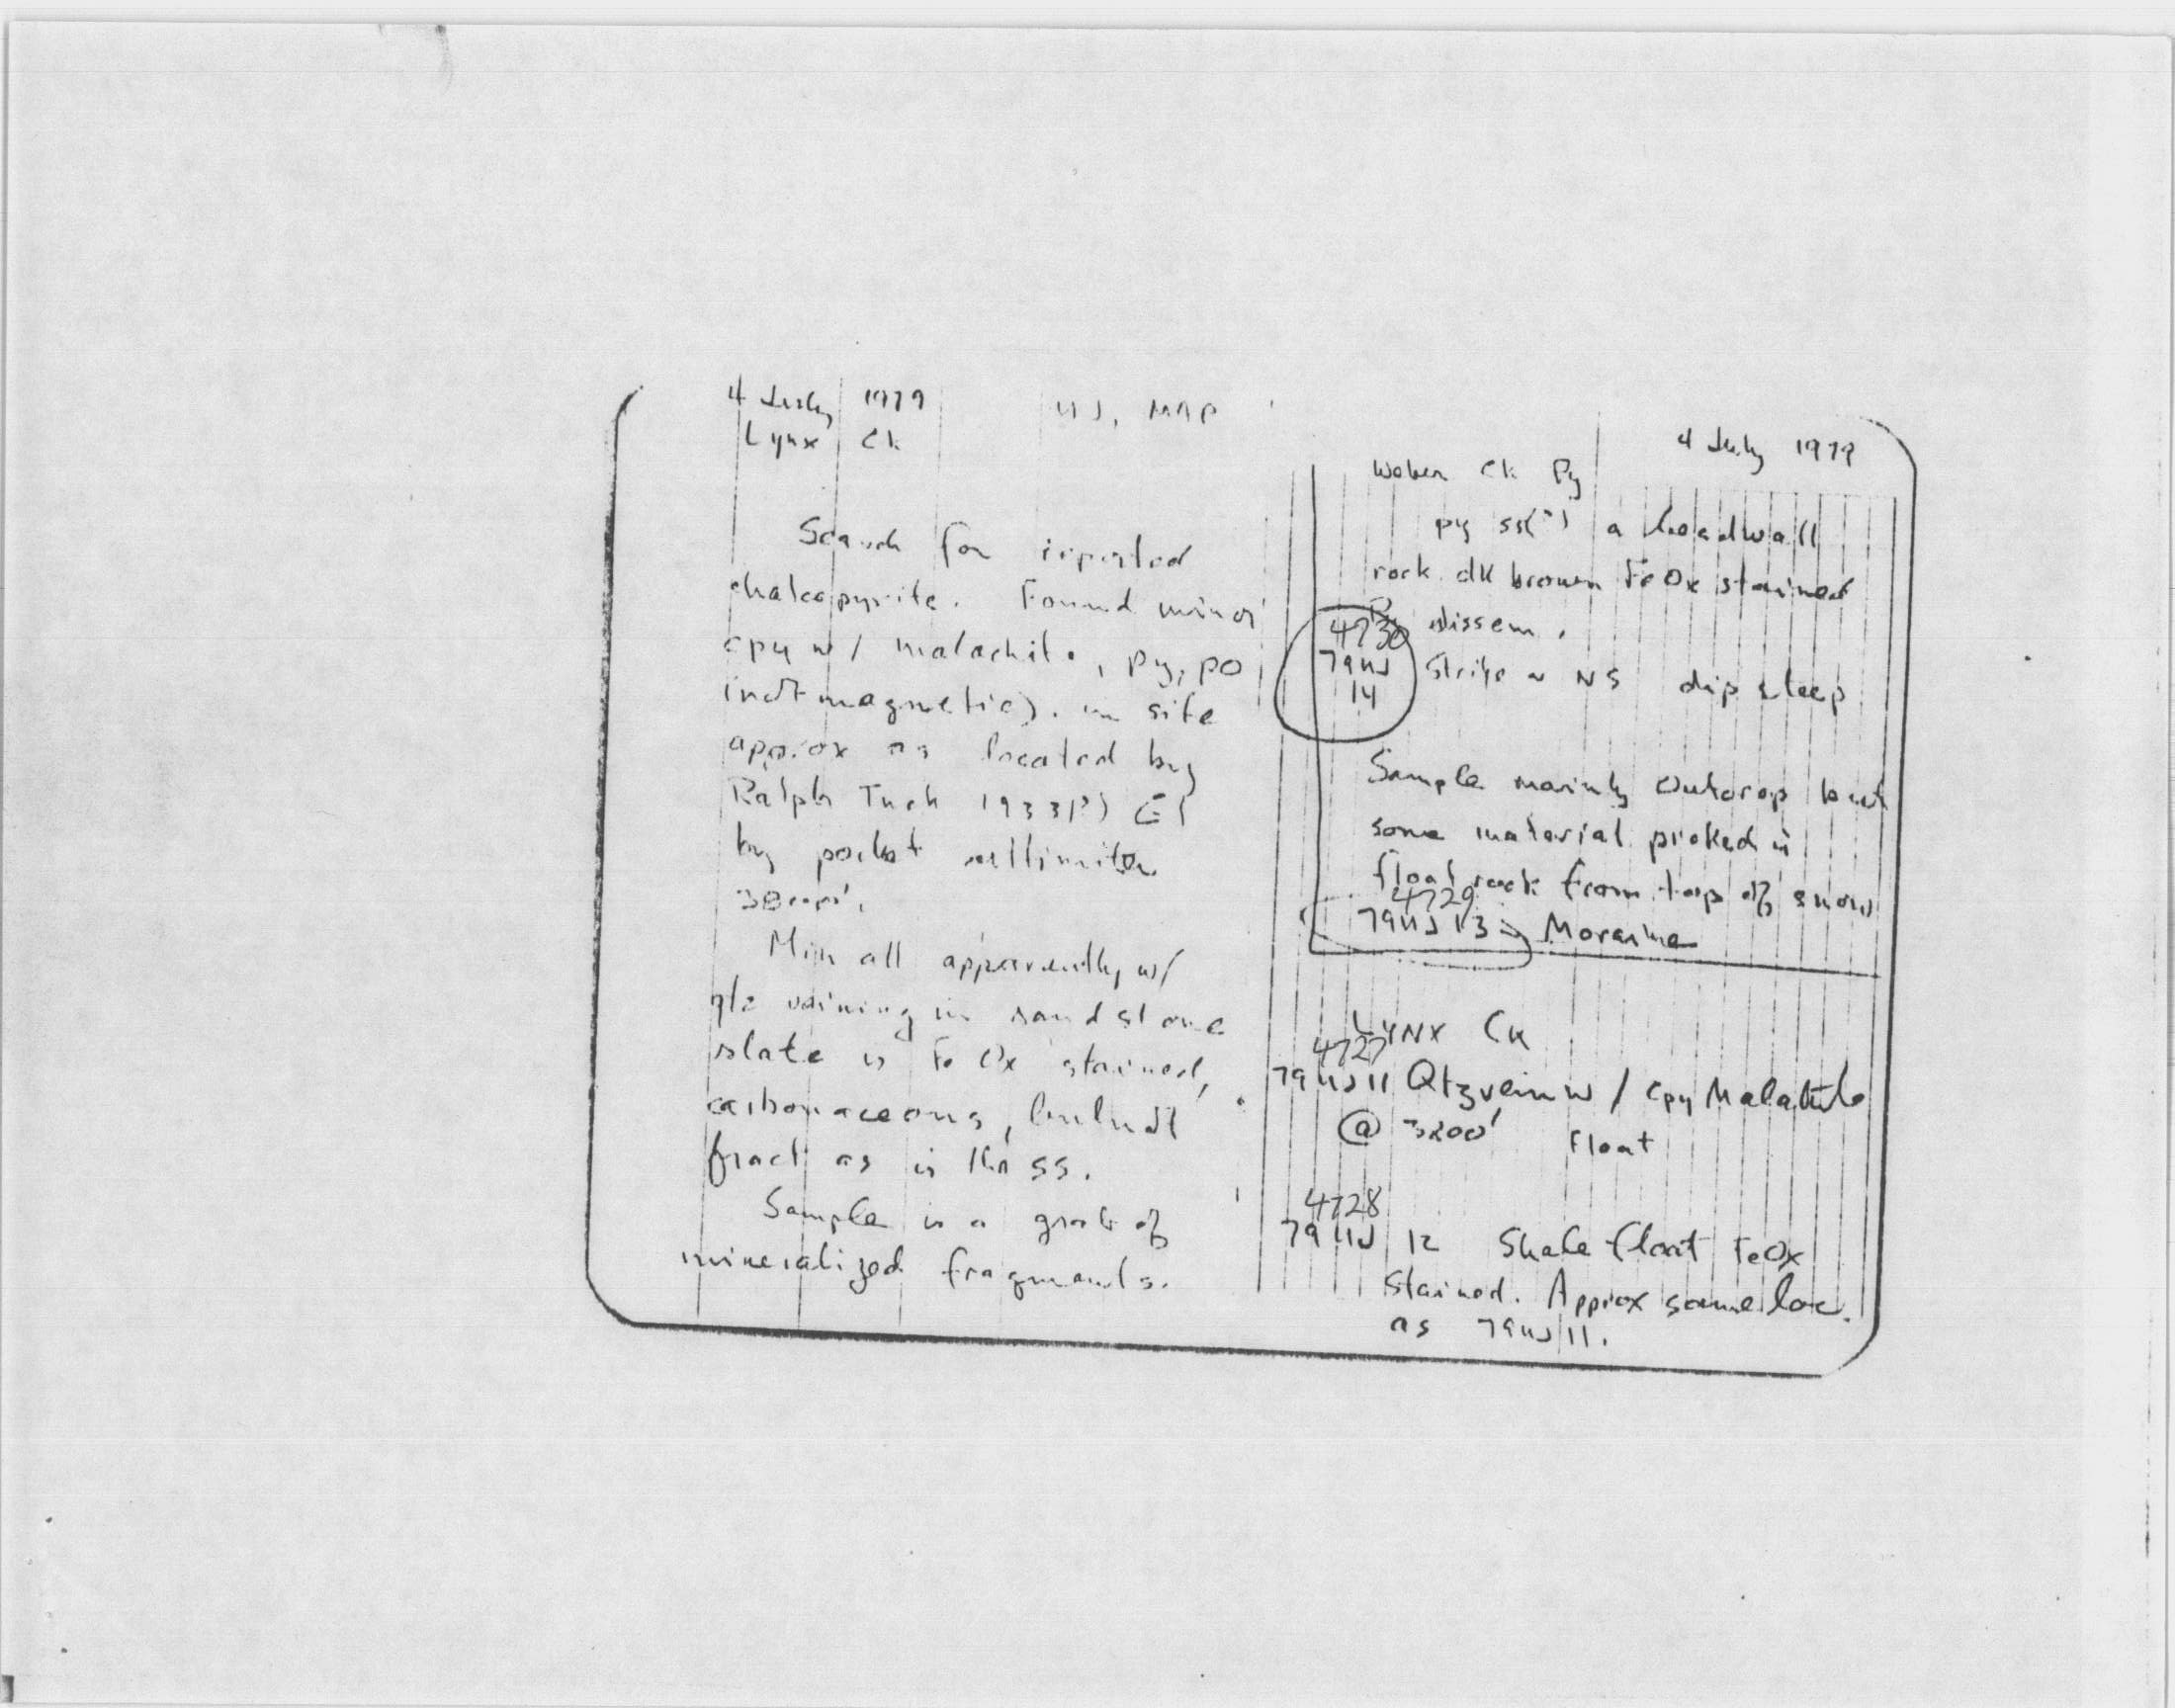 4 July 1979
UJ, MAP
Lynx Ck
Search for reported
chalcopyrite. Found minor
cpy w/ malachite, py, po
(not magnetic). in site
approx as located by
Ralph Tuck 1933(?) El
by pocket altimiter
3800'.
Min all apparently w/
qtz veining in sandstone
slate is FeOx stained,
carbonaceous,
fract as is the ss.
Sample is a grab of
mineralized fragments.
4 July 1979
Weber Ck Py
py ss(?) a headwall
rock dk brown FeOx stained
Py dissem.
4730
79UJ
14
Strike ~ NS dip steep
Sample mainly outcrop but
some material picked
float rock from top of snow
4729
79UJ 13 Moraine
LYNX Ck
4727
79UJ11 Qtz vein w/ cpy Malachite
@ 3200' Float
4728
79UJ 12 Shale float FeOx
stained. Approx same loc.
as 79UJ11.